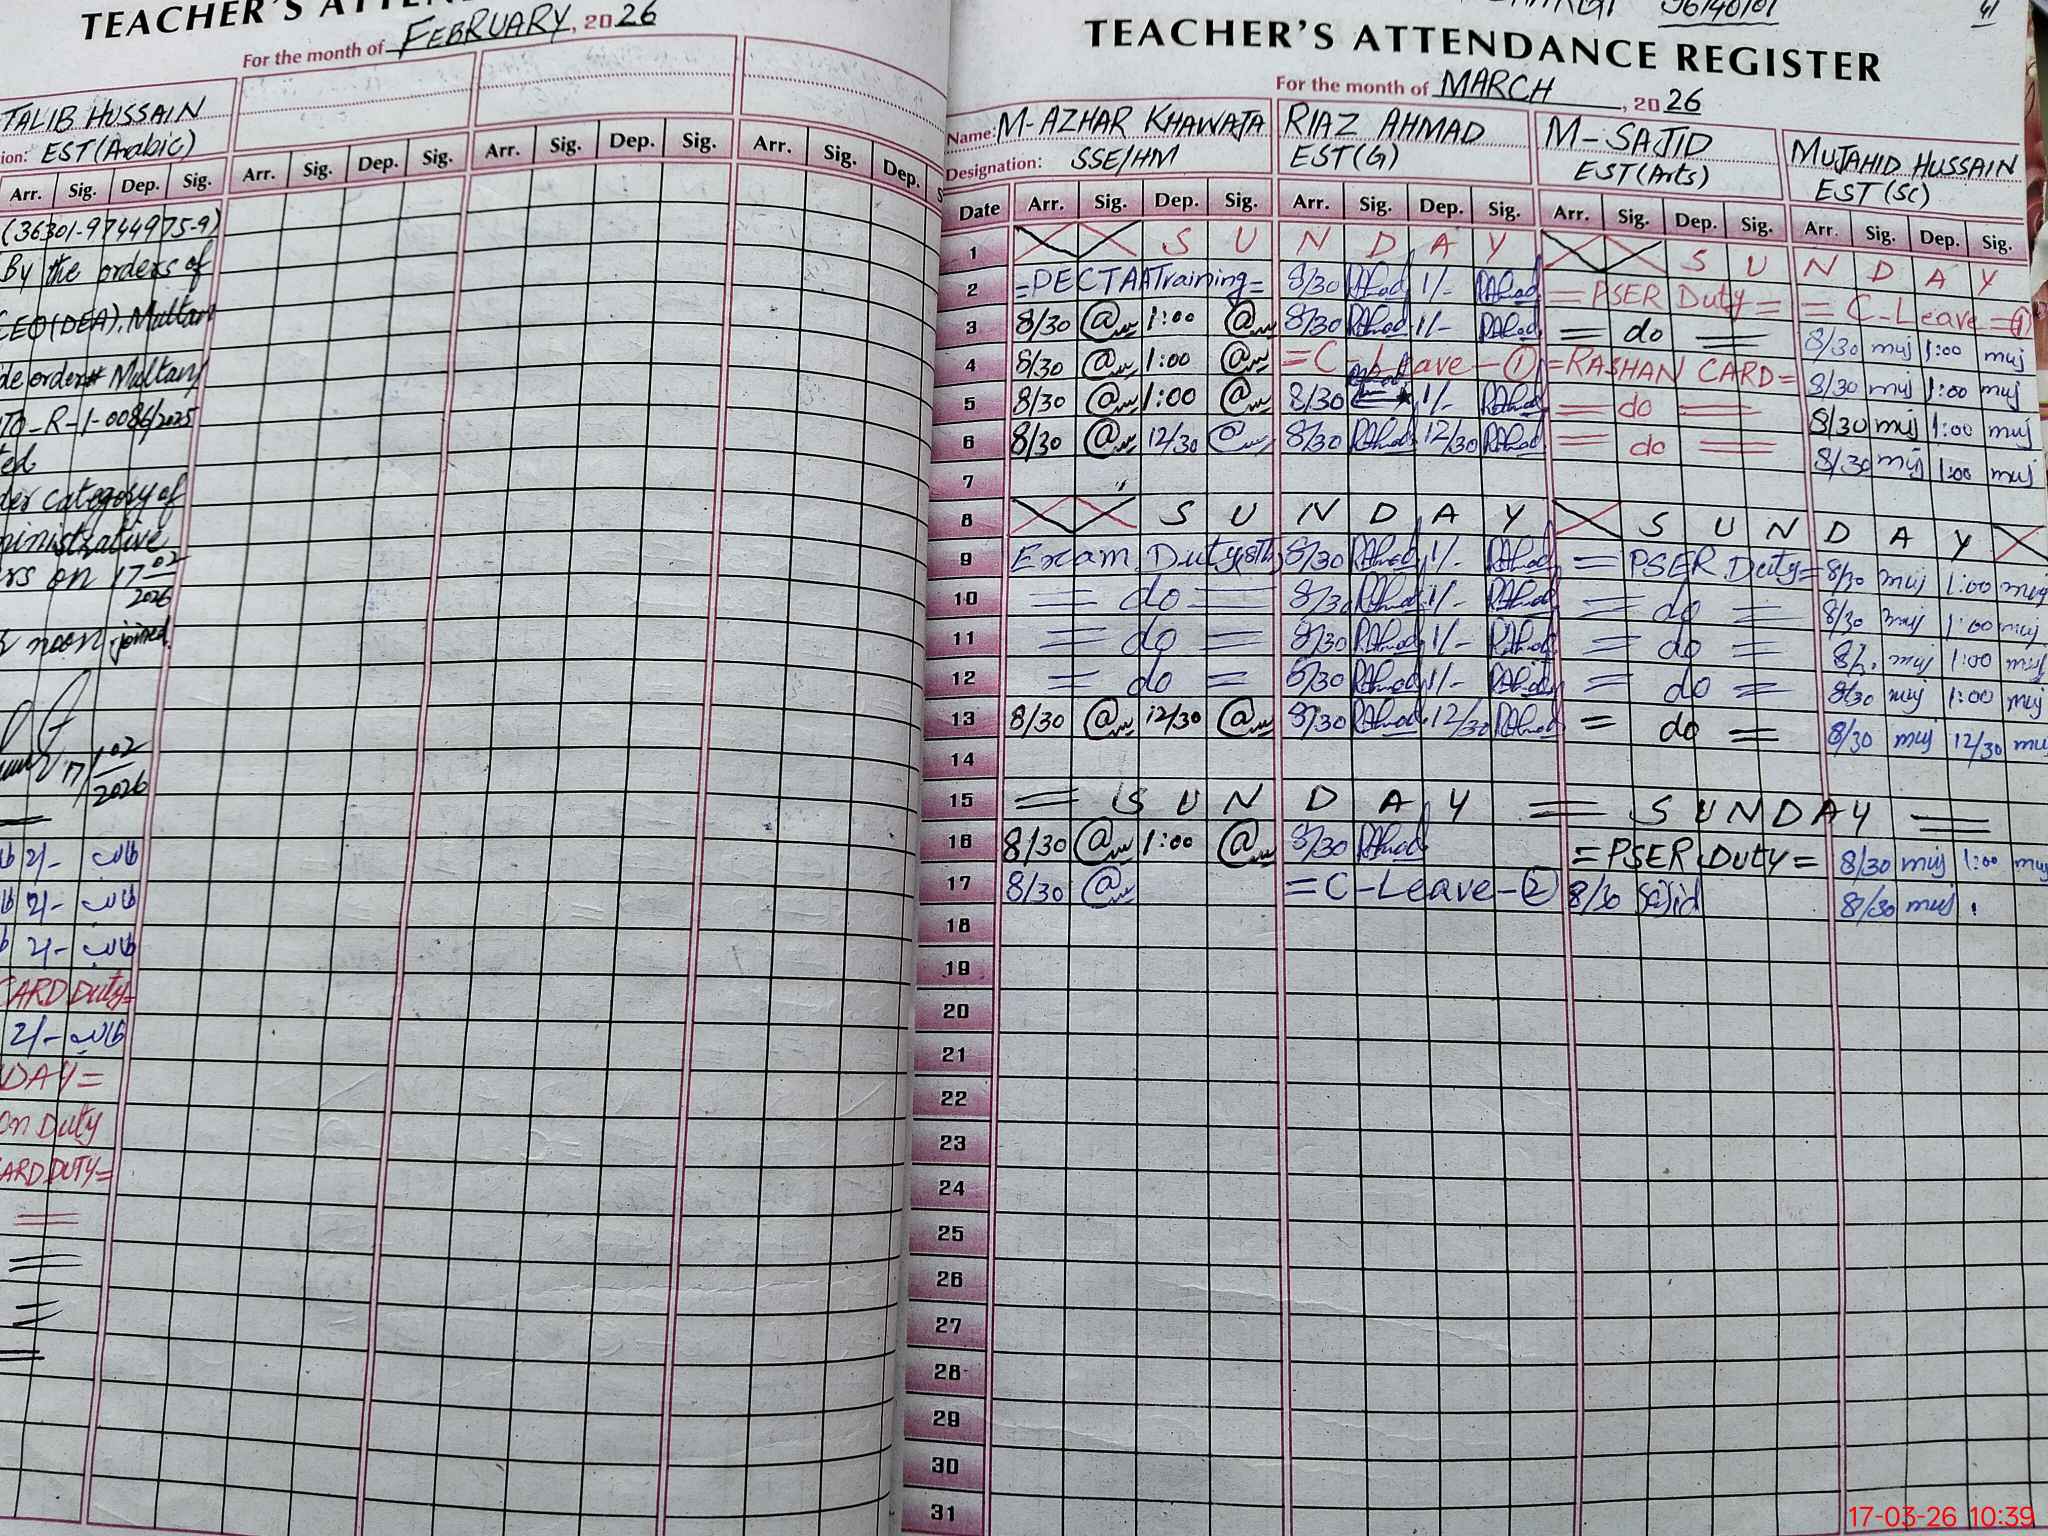 TEACHER'S ATTEN
For the month of FEBRUARY, 2026
TALIB HUSSAIN
tion: EST (Arabic)
Arr. Sig. Dep. Sig. Arr. Sig. Dep. Sig. Arr. Sig. Dep. Sig. Arr. Sig. Dep. S
(36301-9744975-9)
By the orders of
CEO (DEA), Multan
de order# Multan/
TO-R-1-0086/2025
ted
der category of
ministrative
rs on 17-02
2026
noon joined.
17/02
2026
2/- طالب
2/- طالب
2/- طالب
CARD Duty=
2/- طالب
DAY=
on Duty
ARD DUTY=
41
TEACHER'S ATTENDANCE REGISTER
For the month of MARCH, 2026
Name: M-AZHAR KHAWAJA RIAZ AHMAD M-SAJID MUJAHID HUSSAIN
Designation: SSE/HM EST(G) EST(Arts) EST(SC)
Date Arr. Sig. Dep. Sig. Arr. Sig. Dep. Sig. Arr. Sig. Dep. Sig. Arr. Sig. Dep. Sig.
1 S U N D A Y S U N D A Y
2 =PECTAA Training= 8/30 RAhmad 1/- RAhmad =PSER Duty= =C-Leave=①
3 8/30 1:00 8/30 RAhmad 1/- RAhmad = do = 8/30 muj 1:00 muj
4 8/30 1:00 =C-Leave-① =RASHAN CARD= 8/30 muj 1:00 muj
5 8/30 1:00 8/30 1/- RAhmad = do = 8/30 muj 1:00 muj
6 8/30 12/30 8/30 RAhmad 12/30 RAhmad = do = 8/30 muj 1:00 muj
7
8 S U N D A Y S U N D A Y
9 Exam Duty(8th) 8/30 RAhmad 1/- RAhmad =PSER Duty= 8/30 muj 1:00 muj
10 = do = 8/30 RAhmad 1/- RAhmad = do = 8/30 muj 1:00 muj
11 = do = 8/30 RAhmad 1/- RAhmad = do = muj 1:00 muj
12 = do = 8/30 RAhmad 1/- RAhmad = do = 8/30 muj 1:00 muj
13 8/30 12/30 8/30 RAhmad 12/30 RAhmad = do = 8/30 muj 12/30 muj
14
15 = S U N D A Y = = S U N D A Y =
16 8/30 1:00 8/30 RAhmad =PSER Duty= 8/30 muj 1:00 muj
17 8/30 =C-Leave-② 8/30 Sajid 8/30 muj
18
19
20
21
22
23
24
25
26
27
28
29
30
31
17-03-26 10:39